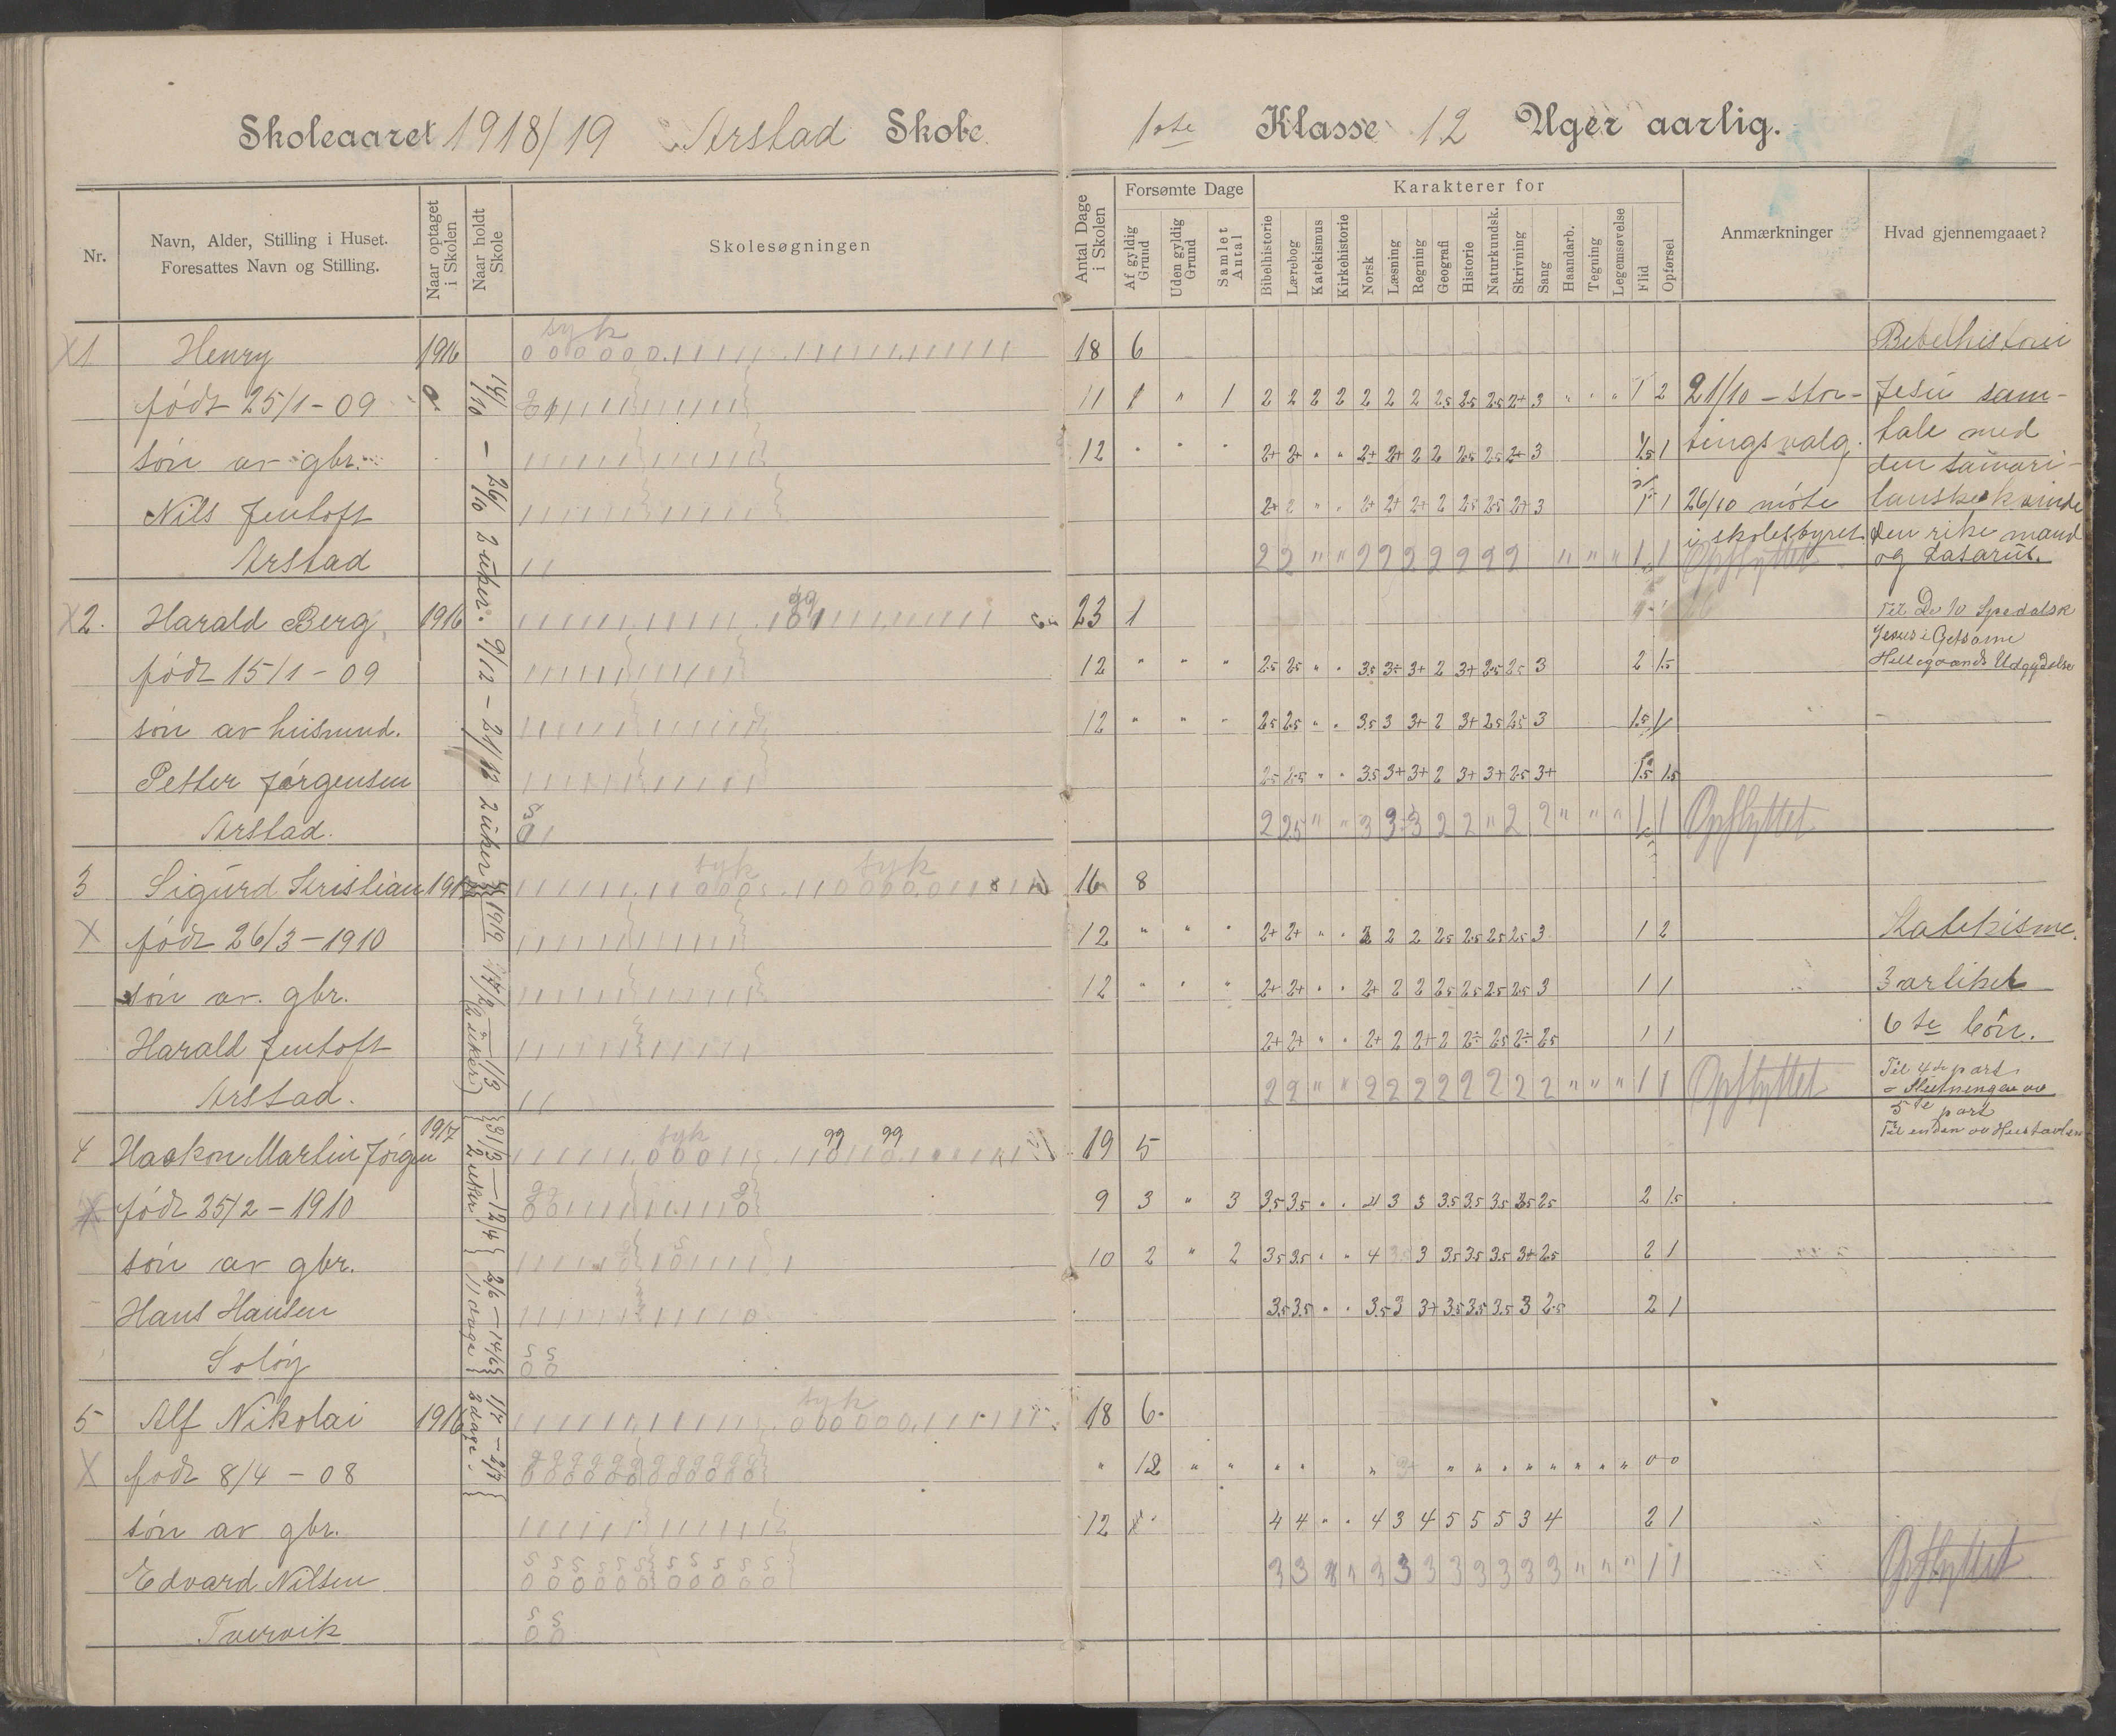 Skoleaaret 1918/19 Arstad Skole. 1ste Klasse 12 Uger aarlig.
Nr.
Navn, Alder, Stilling i Huset.
Foresattes Navn og Stilling.
Naar optaget i Skolen
Naar holdt Skole
Skolesøgningen
Antal Dage i Skolen
Forsømte Dage
Af gyldig Grund
Uden gyldig Grund
Samlet Antal
Karakterer for
Bibelhistorie
Lærebog
Katekismus
Kirkehistorie
Norsk
Læsning
Regning
Geografi
Historie
Naturkundsk.
Skrivning
Sang
Haandarb.
Tegning
Legemsøvelse
Flid
Opførsel
Anmærkninger
Hvad gjennemgaaet?
14/10 — 26/10 2 uker. 9/12 — 21/12 2 uker
1919 17/2 — 1/3 (2 uker)
31/3 — 12/4 2 uker
2/6 — 14/6 11 dage
1/7 — 2/7 2 dage.
X 1 Henry 1916 syk 18 6 Bibelhistorie
født 25/1 - 09 11 1 " 1 2 2 2 2 2 2 2 2.5 2.5 2.5 2+ 3 " " " 1 2 21/10 - stor- Jesu sam-
søn av gbr. 12 " " " 2+ 2+ " " 2+ 2+ 2 2 2.5 2.5 2+ 3 1.5 1 tingsvalg. tale med
den samari-
Nils Jentoft 2+ 2 " " 2+ 2+ 2+ 2 2.5 2.5 2+ 3 1 1 26/10 møte tanske kvinde
i skolestyret. Den rike mand
Arstad 2 2 " " 2 2 2 2 2 2 2 " " " 1 1 Opflyttet og Lasarus.
X 2. Harald Berg 1916 gg 23 1 Til De 10 Spedalsk
Jesus i Getsame
født 15/1 - 09 12 " " " 2.5 2.5 " " 3.5 3÷ 3+ 2 3+ 2.5 2.5 3 2 1.5 Helligaands Udgydelse
søn av husmd. 12 " " " 2.5 2.5 " " 3.5 3 3+ 2 3+ 2.5 2.5 3 1.5 1
Petter Jørgensen 2.5 2.5 " " 3.5 3+ 3+ 2 3+ 3+ 2.5 3+ 1.5 1.5
Arstad. 2 2.5 " " 3 3 3 2 2 " 2 2 " " " 1 1 Opflyttet
3 Sigurd Kristian syk syk 16 8
X født 26/3 - 1910 12 " " " 2+ 2+ " " 2 2 2 2.5 2.5 2.5 2.5 3 1 2 Katekisme.
søn av gbr. 12 " " " 2+ 2+ " " 2+ 2 2 2.5 2.5 2.5 2.5 3 1 1 3 artikel
Harald Jentoft 2+ 2+ " " 2+ 2 2+ 2 2÷ 2.5 2÷ 2.5 1 1 6te bøn.
Arstad. 2 2 " " 2 2 2 2 2 2 2 2 " " " 1 1 Opflyttet Til 4de part
Slutningen av
5te part
Til enden av Hustavlen
4 Haakon Martin Jørgen 1917 syk gg gg 19 5
X født 25/2 - 1910 9 3 " 3 3.5 3.5 " " 4 3 3 3.5 3.5 3.5 3.5 2.5 2 1.5
søn av gbr. 10 2 " 2 3.5 3.5 " " 4 3.5 3 3.5 3.5 3.5 3+ 2.5 2 1
Hans Hansen 3.5 3.5 " " 3.5 3 3+ 3.5 3.5 3.5 3 2.5 2 1
Soløy
5 Alf Nikolai 1916 syk 18 6
X født 8/4 - 08 " 12 " " 0 0
søn av gbr. 12 4 4 " " 4 3 4 5 5 5 3 4 2 1
Edvard Nilsen 3 3 " " 3 3 3 3 3 3 3 3 " " " 1 1 Opflyttet
Tvervik